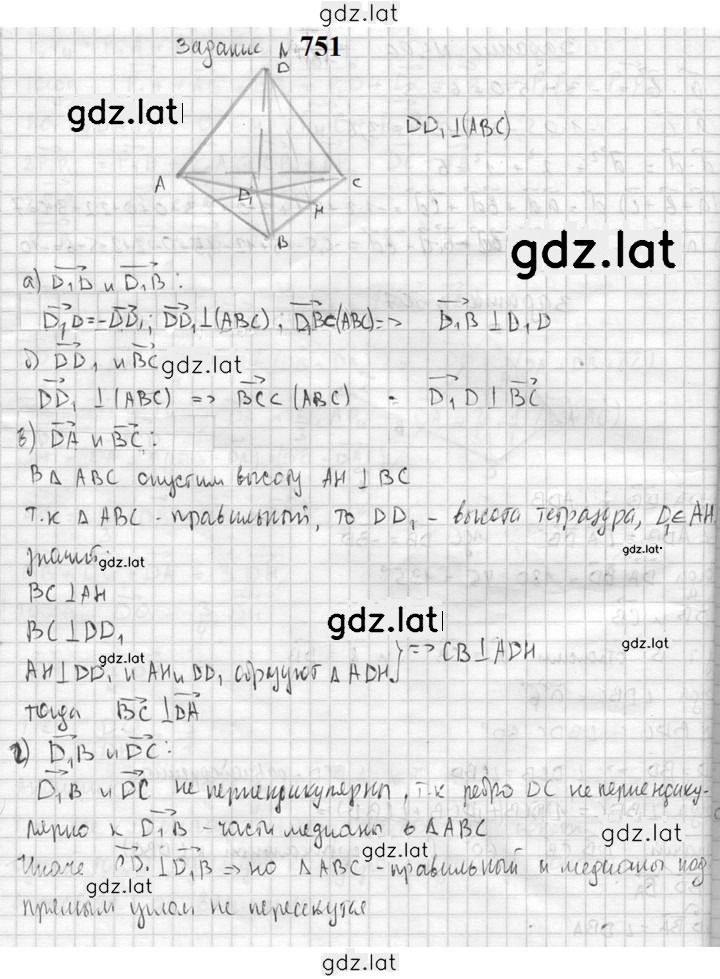 gdz.lat
Задание N 751
D
gdz.lat
DD₁ ⊥ (ABC)
A
C
D₁
H
B
gdz.lat
а) D₁D и D₁B :
D₁D = -DD₁ ; DD₁ ⊥ (ABC) ; D₁B ⊂ (ABC) => D₁B ⊥ D₁D
б) DD₁ и BC gdz.lat
DD₁ ⊥ (ABC) => BC ⊂ (ABC) - D₁D ⊥ BC
в) DA и BC :
В Δ ABC опустим высоту AH ⊥ BC
т.к Δ ABC - правильный, то DD₁ - высота тетраэдра, D₁ ∈ AH
значит: gdz.lat gdz.lat
BC ⊥ AH
BC ⊥ DD₁ gdz.lat
AH ⊥ DD₁ и AH и DD₁ образуют Δ ADH } => CB ⊥ ADH
gdz.lat gdz.lat
тогда BC ⊥ DA
г) D₁B и DC :
D₁B и DC не перпендикулярны, т.к ребро DC не перпендику-
лярно к D₁B - части медианы в Δ ABC
gdz.lat gdz.lat
Иначе CD₁ ⊥ D₁B => но Δ ABC - правильный и медианы под
gdz.lat
прямым углом не пересекутся
gdz.lat